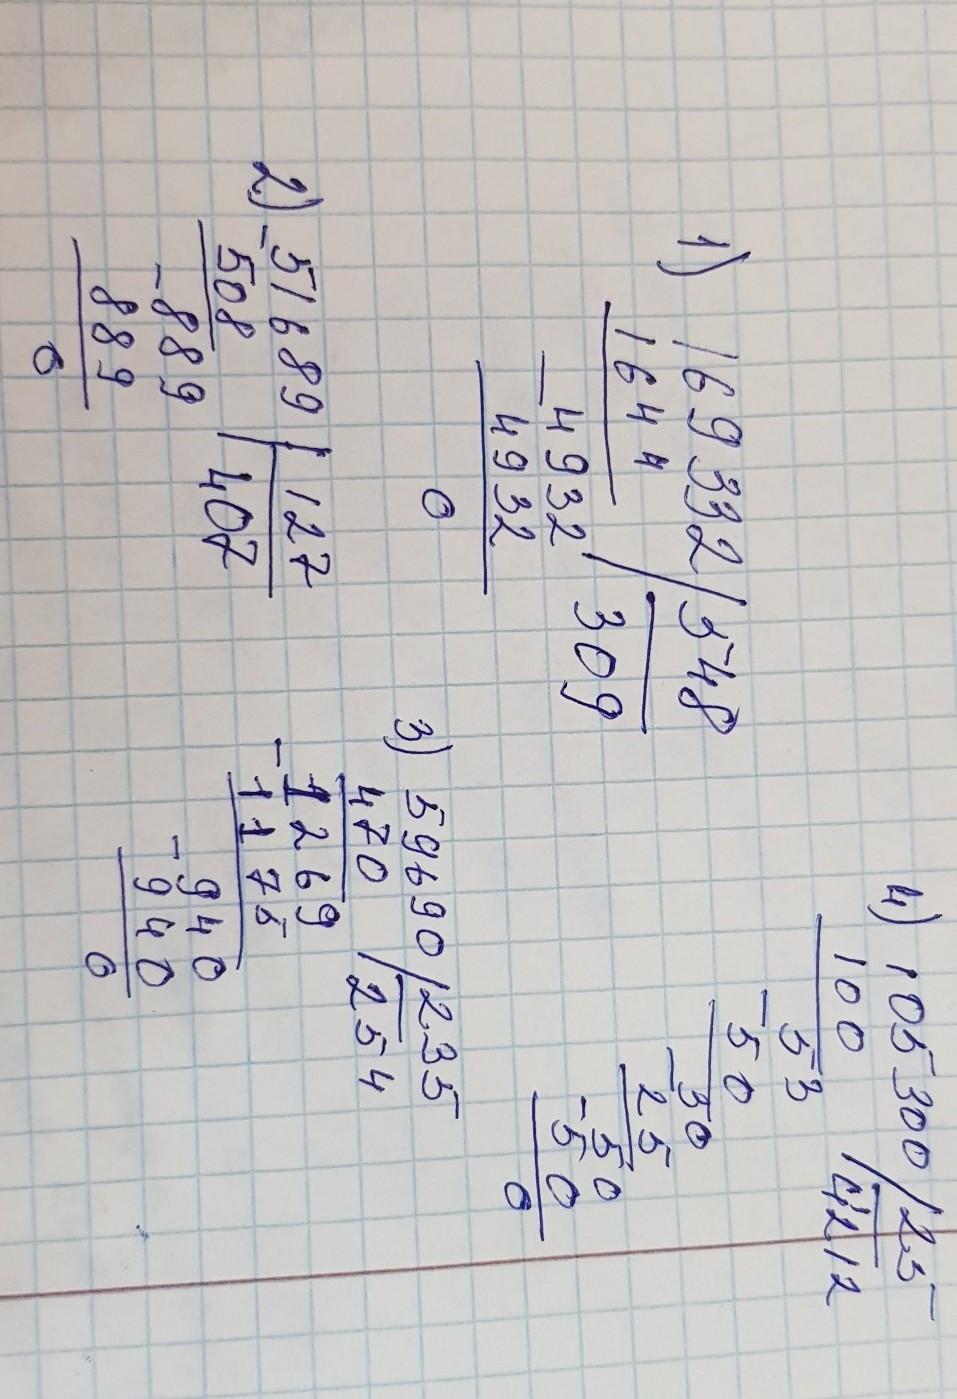 1) 169332 548
1644 309
- 4932
4932
0
2) - 51689 127
508 407
- 889
889
0
3) 59690 235
470 254
- 1269
1175
- 940
940
0
4) 105300 25
100 4212
53
- 50
- 30
25
- 50
50
0